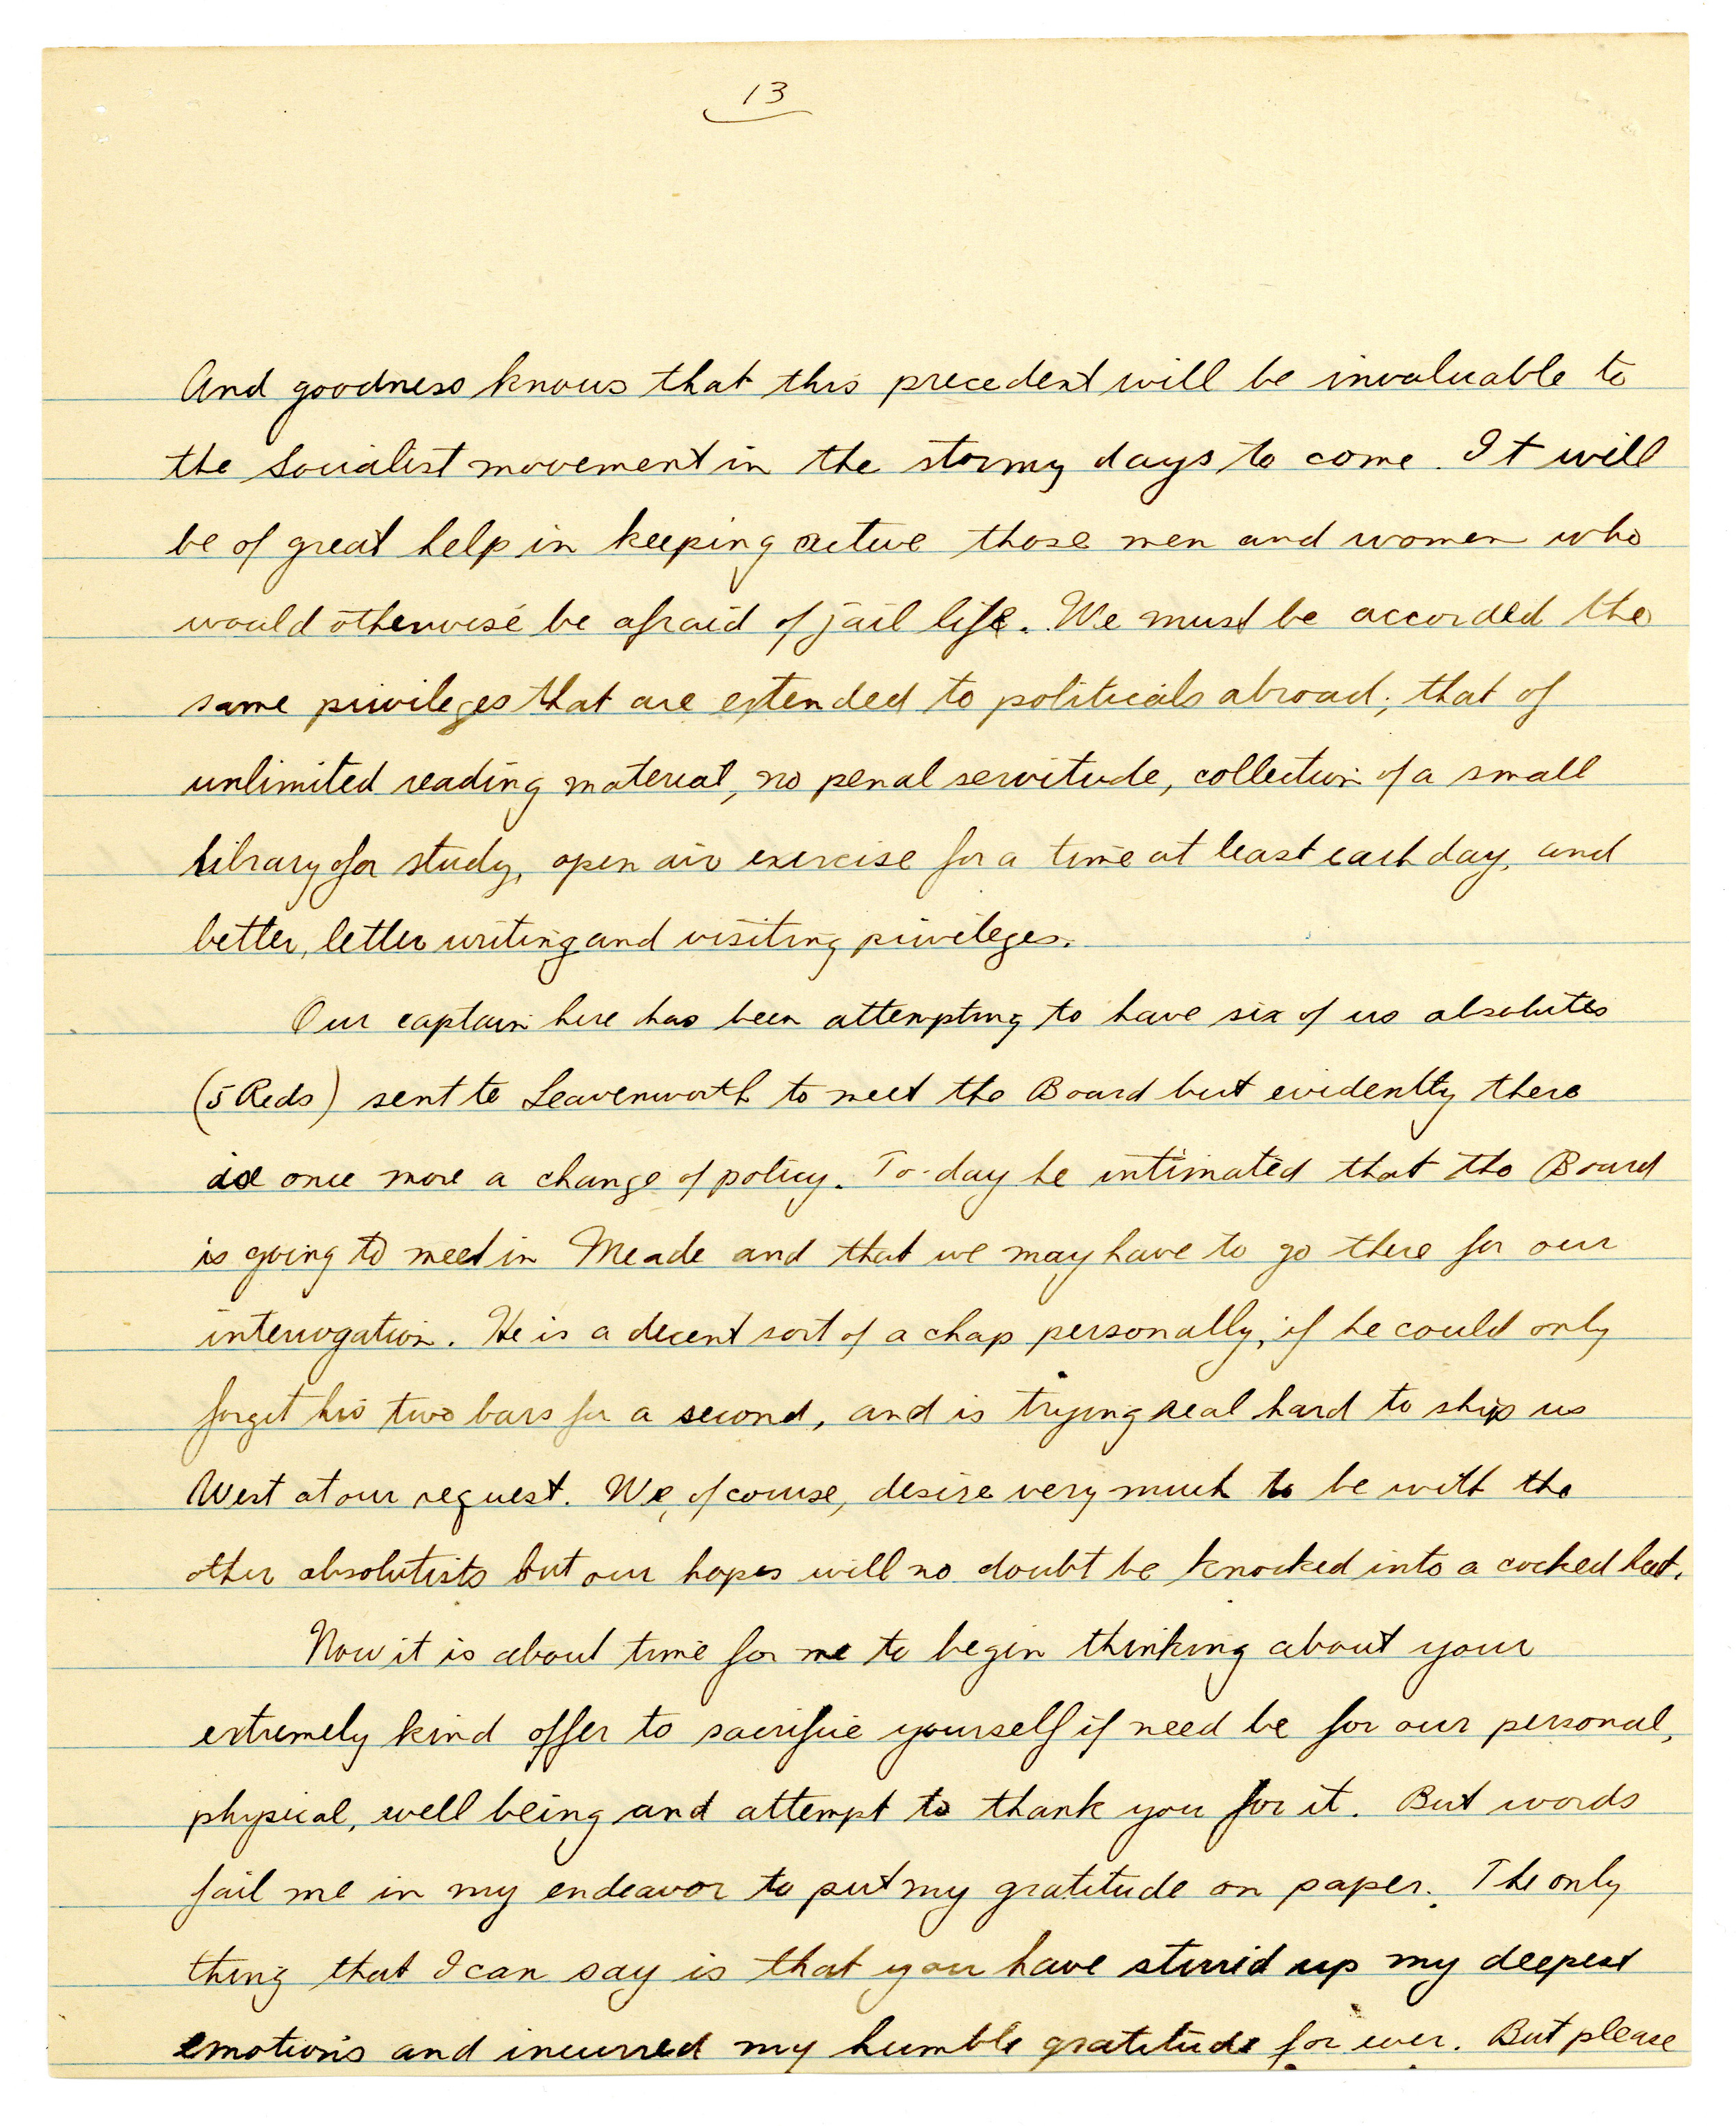 13
And goodness knows that this precedent will be invaluable to
the Socialist movement in the stormy days to come. It will
be of great help in keeping active those men and women who
would otherwise be afraid of jail life. We must be accorded the
same privileges that are extended to politicals abroad; that of
unlimited reading material, no penal servitude, collection of a small
library for study, open air exercise for a time at least each day, and
better, letter writing and visiting privileges.
Our captain here has been attempting to have six of us absolutes
(5 Reds) sent to Leavenworth to meet the Board but evidently there
is once more a change of policy. To-day he intimated that the Board
is going to meet in Meade and that we may have to go there for our
interrogation. He is a decent sort of a chap personally, if he could only
forget his two bars for a second, and is trying real hard to ship us
West at our request. We, of course, desire very much to be with the
other absolutists but our hopes will no doubt be knocked into a cocked hat.
Now it is about time for me to begin thinking about your
extremely kind offer to sacrifice yourself if need be for our personal,
physical, well being and attempt to thank you for it. But words
fail me in my endeavor to put my gratitude on paper. The only
thing that I can say is that you have stirred up my deepest
emotions and incurred my humble gratitude for ever. But please